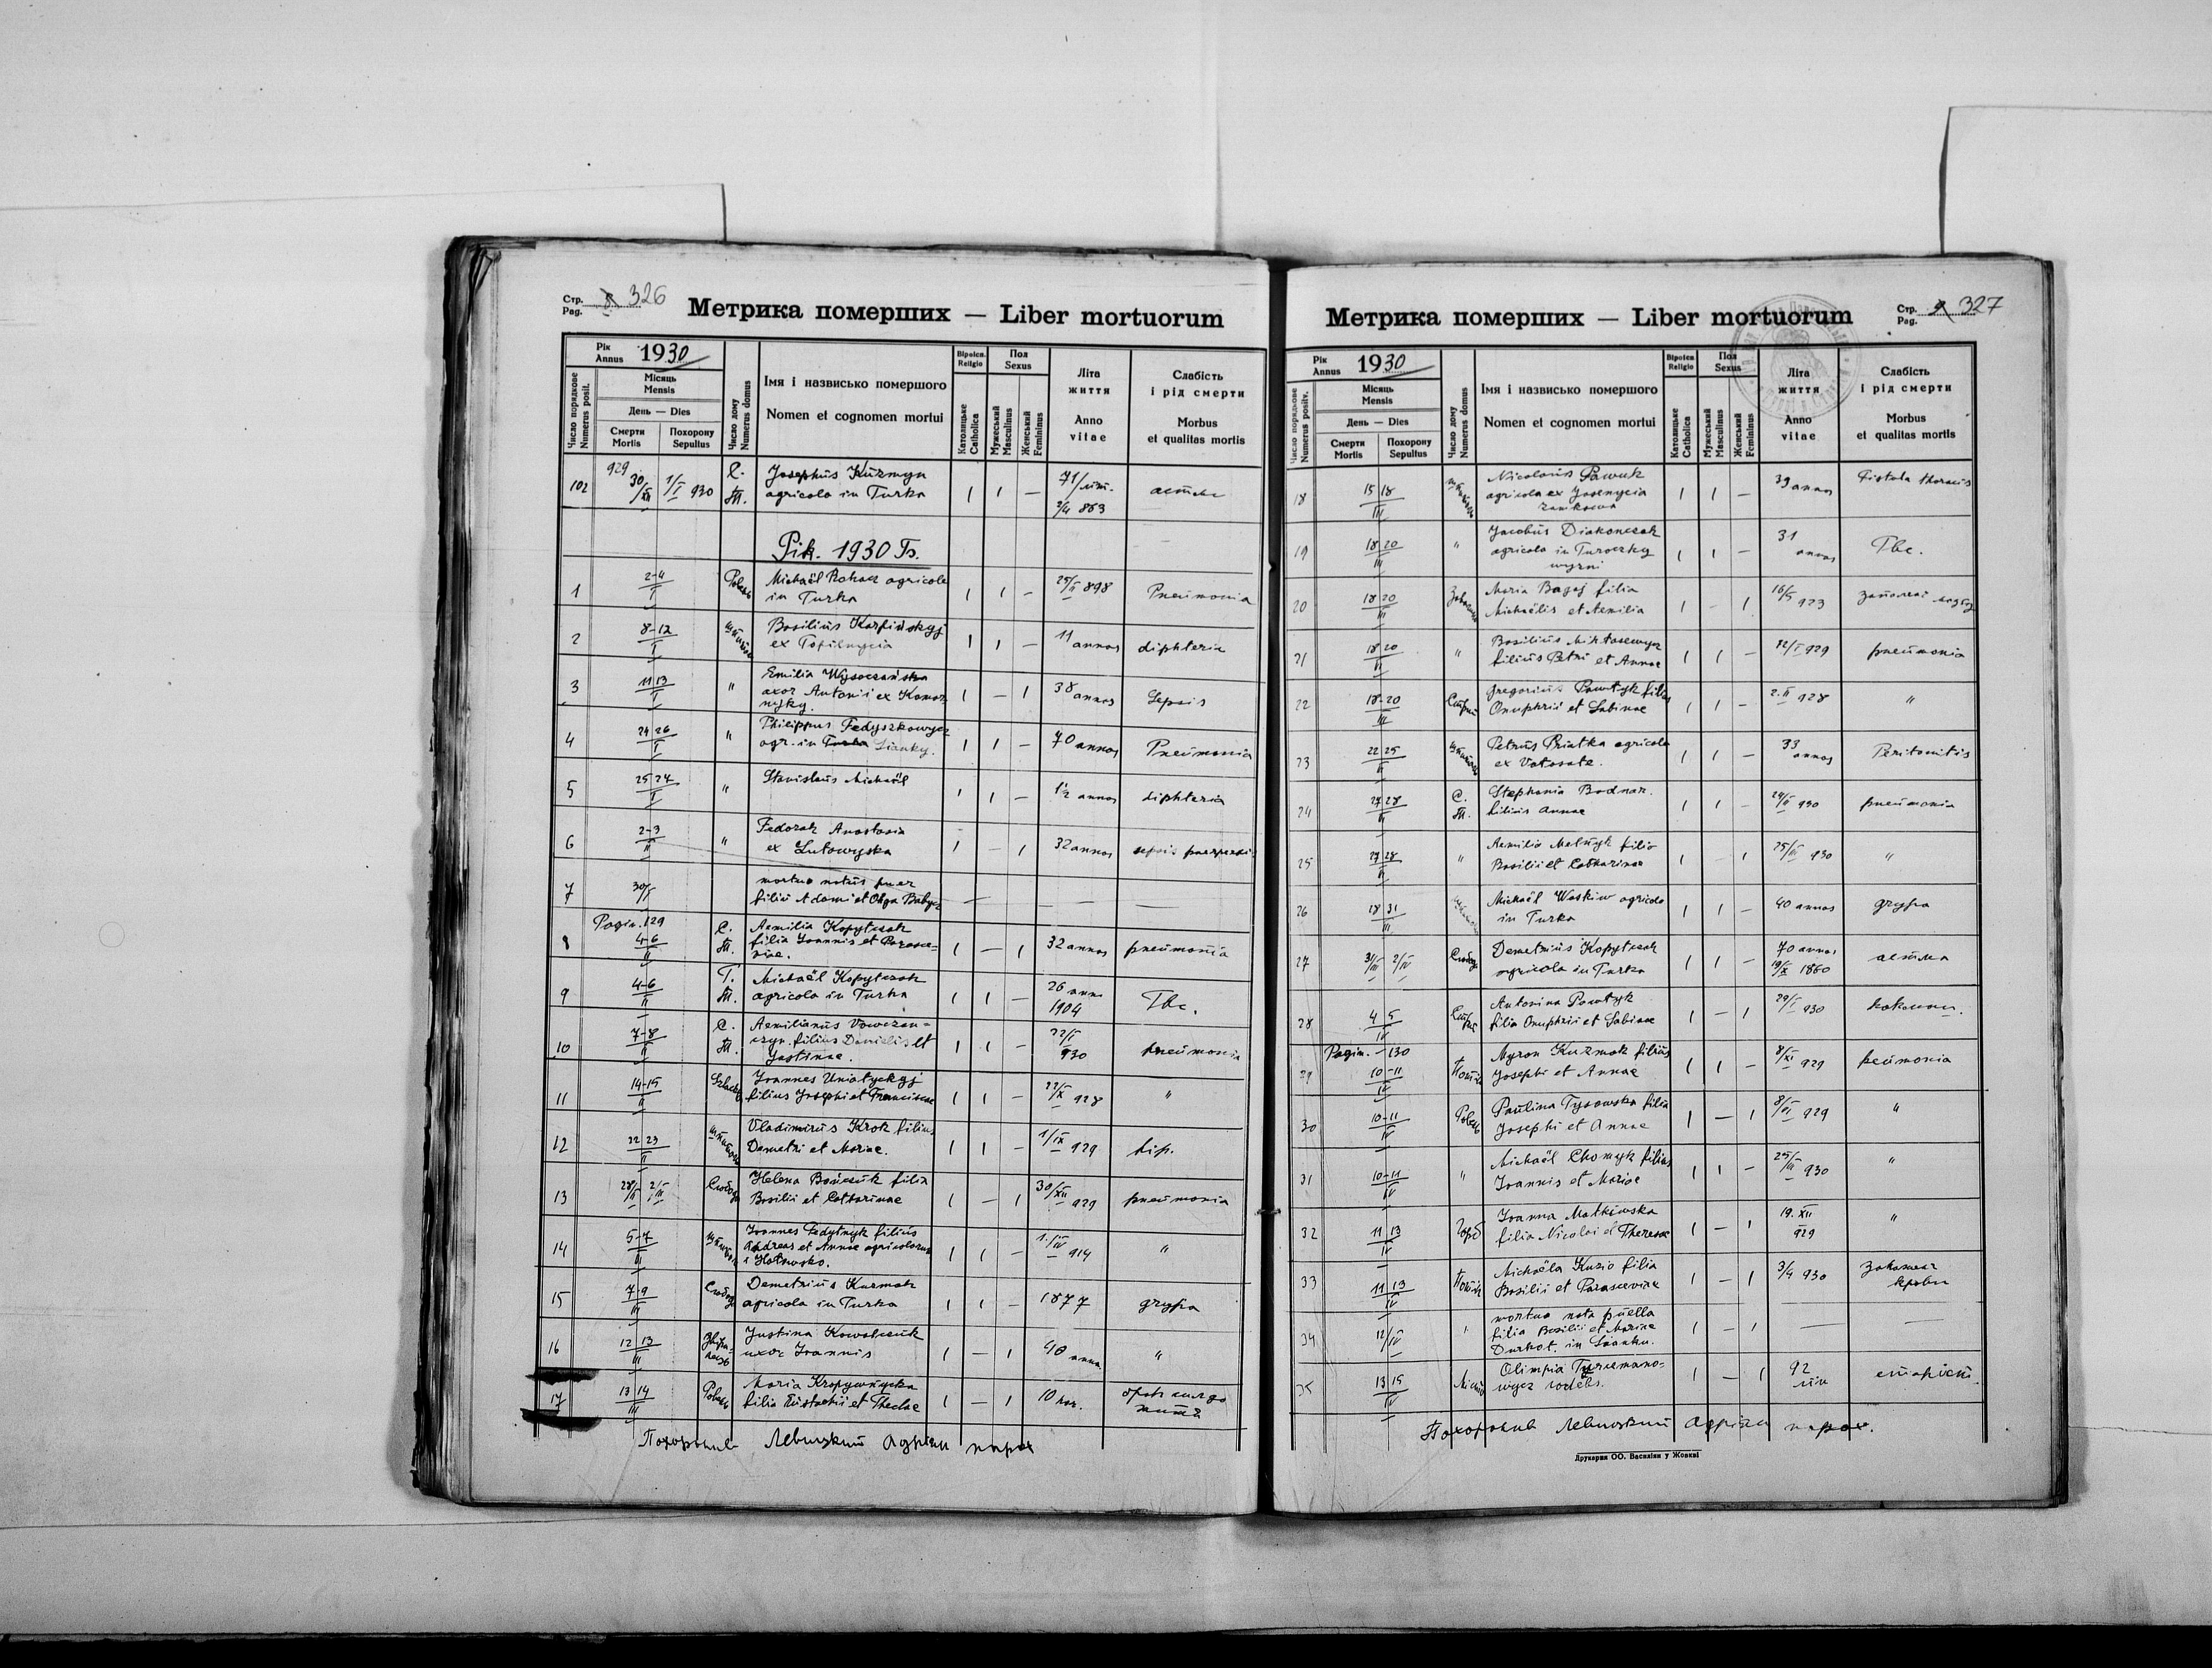 Стр. 326
Pag.
Метрика померших — Liber mortuorum
Рік
Annus 1930
Число порядкове
Numerus posit.
Місяць
Mensis
День — Dies
Смерти
Mortis
Похорону
Sepultus
Число дому
Numerus domus
Імя і назвисько помершого
Nomen et cognomen mortui
Віроісп.
Religio
Католицьке
Catholica
Пол
Sexus
Мужеський
Masculinus
Женський
Femininus
Літа
життя
Anno
vitae
Слабість
і рід смерти
Morbus
et qualitas mortis
102 929 30/XII 1/I 930 С. Т. Josephus Kuzmyn
agricola in Turka 1 1 — 71/літ.
863 астма
Рік. 1930 Тs.
1 2-4 I Michaël Rohacz agricola
in Turka 1 1 — 25/II 898 Pneumonia
2 8-12 I Basilius Karpińskyj
ex Topilnycia 1 1 — 11 annos diphteria
3 11 13 I " Emilia Wysoczańska
uxor Antonii ex Komar
nyky. 1 — 1 38 annos Sepsis
4 24 26 I " Philippus Fedyszkowycz
agr. in Turka Sianky. 1 1 — 70 annos Pneumonia
5 25 27 I " Stanislaus Michaël 1 1 — 1½ annos diphteria
6 2-3 II " Fedorak Anastasia
ex Lutowyska 1 — 1 32 annos sepsis
7 30/I mortuo natus puer
filius Adami et Olga Babycz — — —
Pagin. 129
8 4-6 II С. Т. Aemilia Kopytczak
filia Joannis et Parasce-
viae. 1 — 1 32 annos pneumonia
9 4-6 II Т. Т. Michaël Kopytczak
agricola in Turka 1 1 — 26 anno
1904 Tbc.
10 7-8 II С. Т. Aemilianus
filius Danielis et
Justinae. 1 1 — 22/I
930 pneumonia
11 14-15 II Joannes Uniatyckyj
filius Josephi et Franciscae 1 1 — 22/X 928 "
12 22 23 II Vladimirus Krok filius
Demetri et Mariae. 1 1 — 1/IX 929 dip.
13 28/II 2/III Слобода Helena Bończuk filia
Basilii et Catharinae 1 — 1 30/XII 929 pneumonia
14 5-7 III Joannes Fedytnyk filius
Andreas et Annae agricolarum
1 1 — 1./IV 914 "
15 7-9 III Слобода Demetrius Kuzmak
agricola in Turka 1 1 — 1877 grypa
16 12 13 III Justina Kowalczuk
uxor Joannis 1 — 1 40 anno. "
17 13 14 III Maria Kropywnycka
filia Eustachii et Theclae 1 — 1 10 hor. брак сил до
життя
Похоронив Левицкий Адріян парох
Стр. 327
Pag.
Метрика померших — Liber mortuorum
Рік
Annus 1930
Число порядкове
Numerus positv.
Місяць
Mensis
День — Dies
Смерти
Mortis
Похорону
Sepultus
Число дому
Numerus domus
Імя і назвисько помершого
Nomen et cognomen mortui
Віроісп.
Religio
Католицьке
Catholica
Пол
Sexus
Мужеський
Masculinus
Женський
Femininus
Літа
життя
Anno
vitae
Слабість
і рід смерти
Morbus
et qualitas mortis
18 15 18 III Nicolaus Pawuk
agricola ex Jasenycia
zamkowa 1 1 — 39 annos Fistula thoracis
19 18 20 III " Jacobus Diakonczak
agricola in Turoczky
wyzni 1 1 — 31
annos Tbc.
20 18 20 III Maria Bagaj filia
Michaëlis et Aemilia 1 — 1 923
21 18 20 " Basilius
filius Petri et Annae 1 1 — 12/I 929 pneumonia
22 18-20 III Gregorius Pawtyk filius
Onuphrii et Sabinae 1 1 — 2.II 928 "
23 22 25 Petrus Priatka agricola
ex 1 1 — 33
annos Peritonitis
24 27 28 С. Т. Stephania Bodnar.
filius Annae 1 1 — 930 pneumonia
25 27 28 " Aemilia Melnyk filia
Basilii et Catharinae 1 — 1 930 "
26 28 31 III Michaël Waskiw agricola
in Turka 1 1 — 40 annos grypa
27 31/III 2/IV Слобода Demetrius Kopytczak
agricola in Turka 1 1 — 70 annos
19/X 1860 астма
28 4 5 IV Antonina Pawtyk
filia Onuphrii et Sabinae 1 — 1 29/I 930 коклюш.
Pagin. — 130
29 10-11 IV Myron Kuzmak filius
Josephi et Annae 1 1 — 8/XI 929 pneumonia
30 10-11 IV Paulina Tysowska filia
Josephi et Annae 1 — 1 929 "
31 10-11 IV " Michaël Chomyk filius
Joannis et Mariae 1 1 — 930 "
32 11 13 IV Горб Joanna Matkiwska
filia Nicolai et Theresae 1 — 1 19.XII
929 "
33 11 13 IV Michaëla Kuzio filia
Basilii et Parasceviae 1 — 1 3/4 930 закажен
крови
34 12/IV " mortua nata puella
filia Basilii et Marinae
Durkot. in Sianky. 1 — 1 — —
35 13 15 IV Місто Olimpia
1 — 1 92
літ старість
Похоронив Левицкий Адріян парох.
Друкарня ОО. Василіян у Жовкві